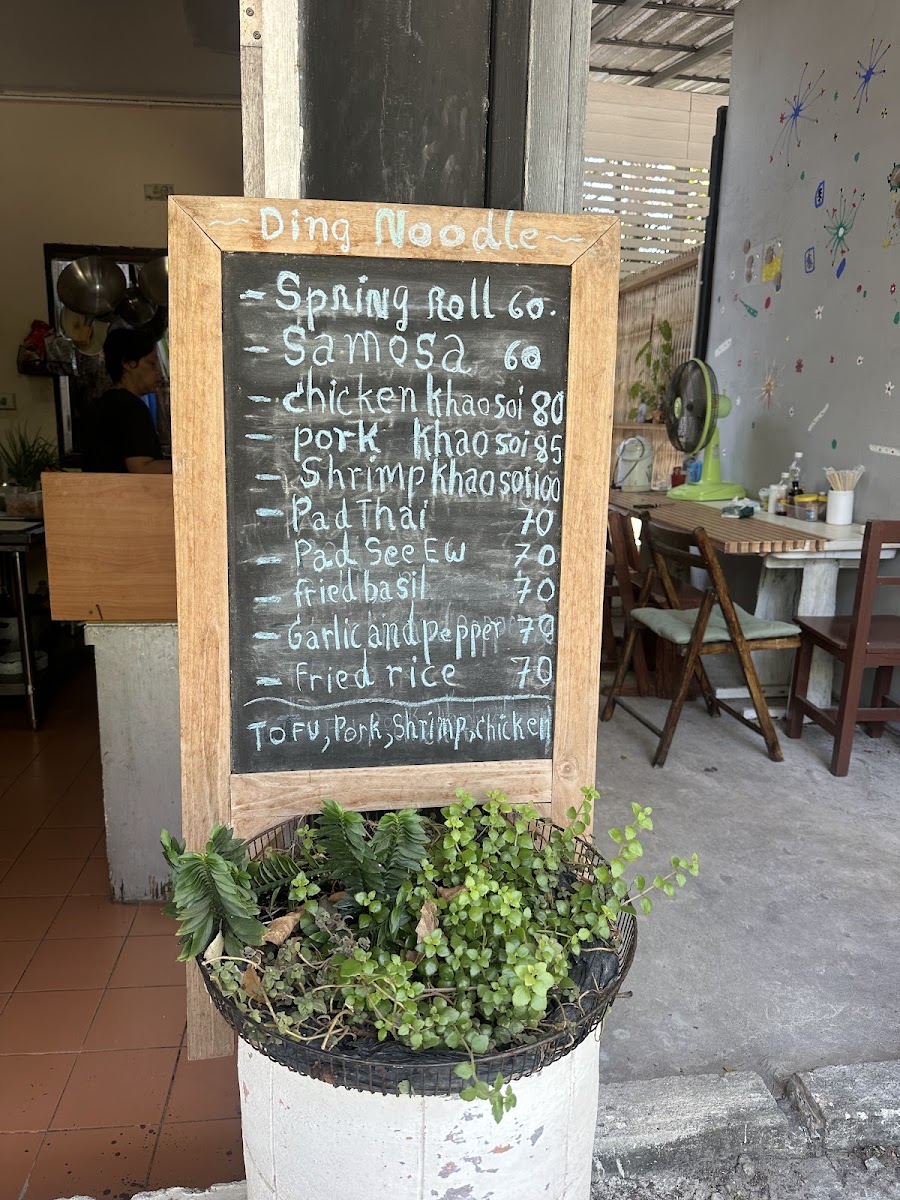 ~ Ding Noodle ~
- Spring Roll 60.
- Samosa 60
- chicken khao soi 80
- pork khao soi 85
- Shrimp khao soi 100
- Pad Thai 70
- Pad See Ew 70
- fried basil 70
- Garlic and pepper 70
- Fried rice 70
TOFU, Pork, Shrimp, chicken